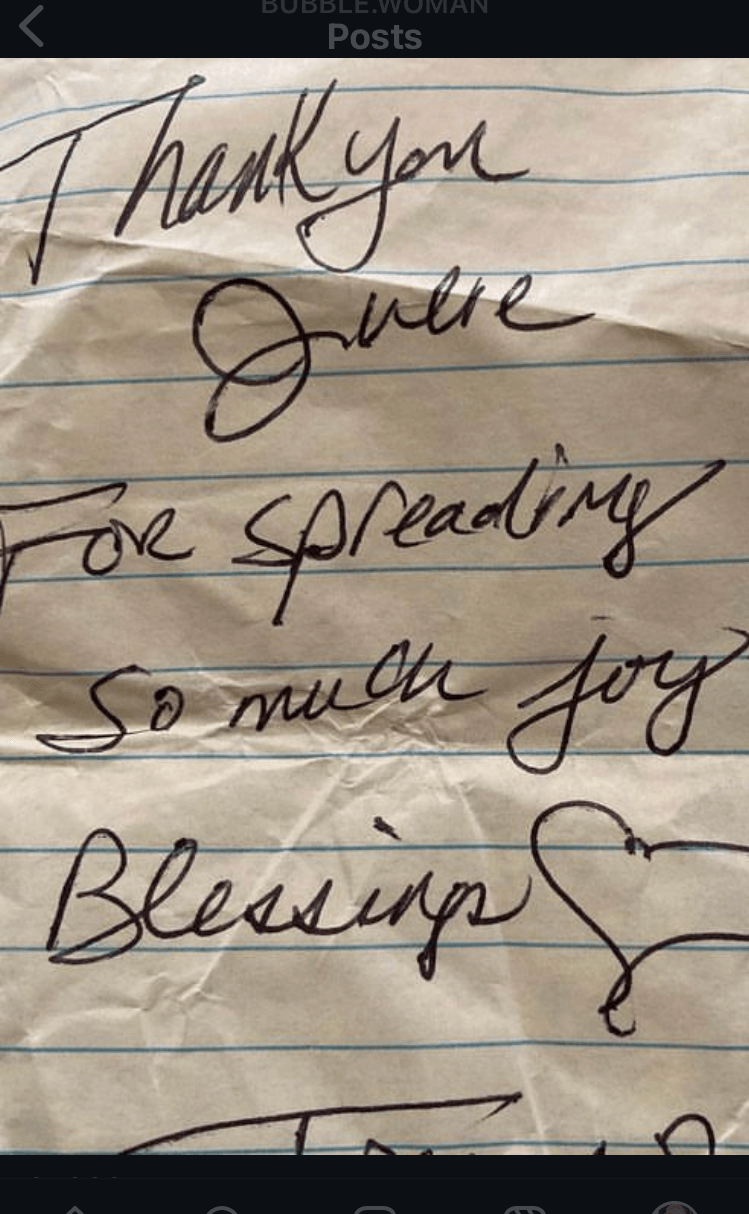 BUBBLE.WOMAN
Posts
Thank you
Julie
For spreading
so much joy
Blessings